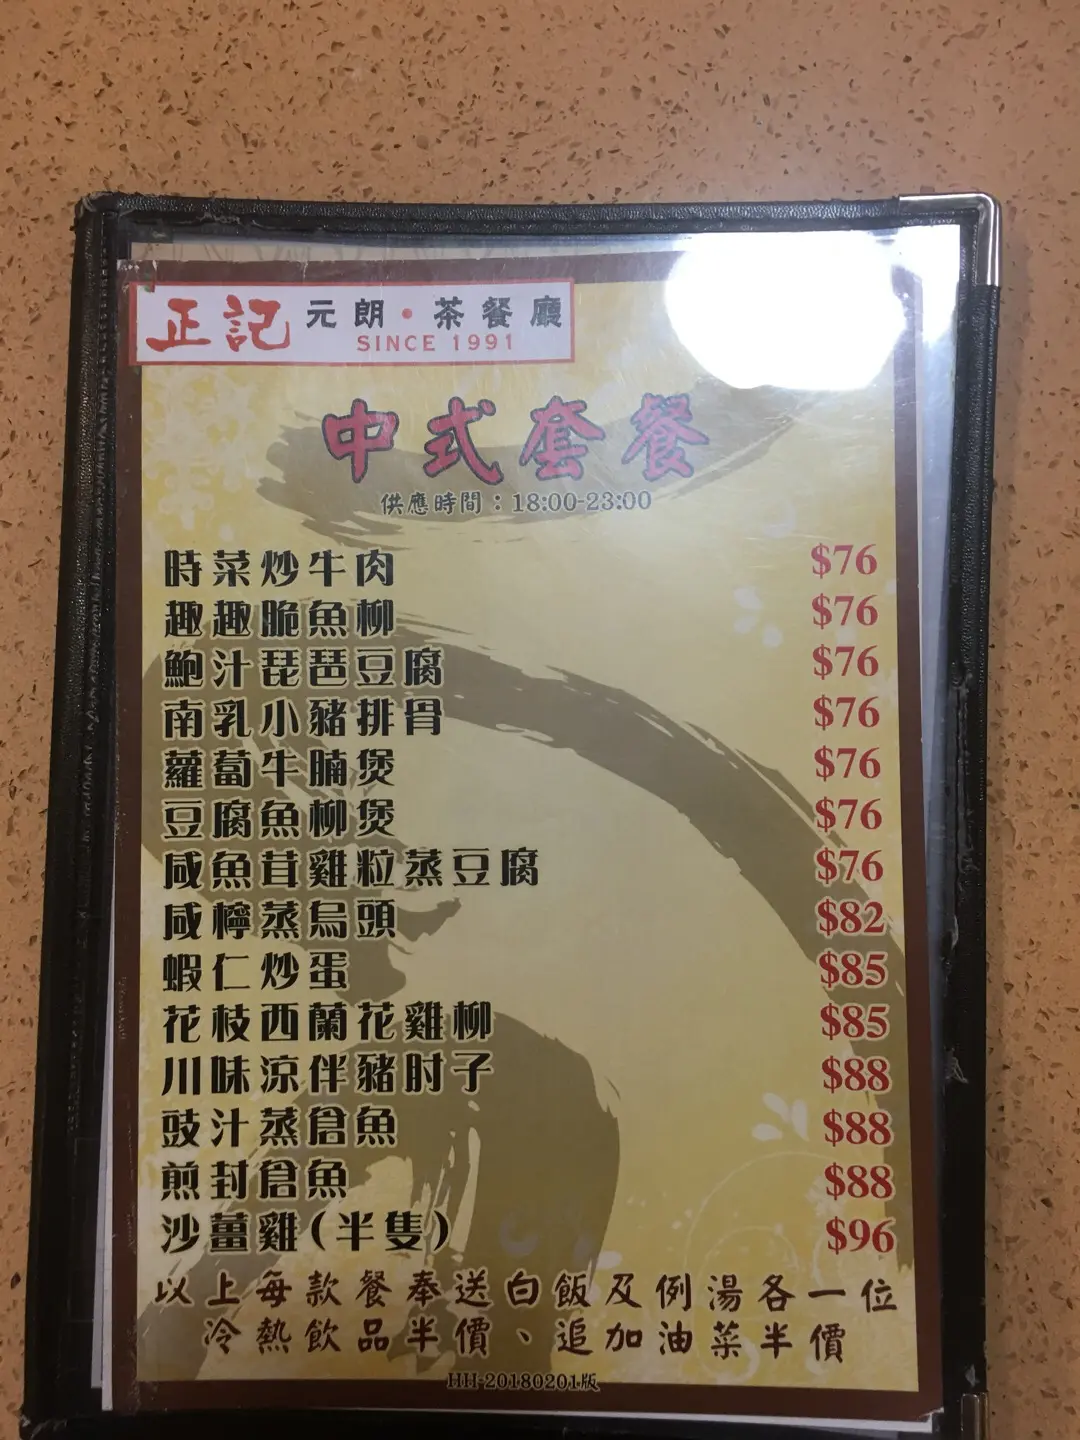 正記 元朗•茶餐廳
SINCE 1991
中式套餐
供應時間：18:00-23:00
時菜炒牛肉 $76
趣趣脆魚柳 $76
鮑汁琵琶豆腐 $76
南乳小豬排骨 $76
蘿蔔牛腩煲 $76
豆腐魚柳煲 $76
咸魚茸雞粒蒸豆腐 $76
咸檸蒸烏頭 $82
蝦仁炒蛋 $85
花枝西蘭花雞柳 $85
川味涼伴豬肘子 $88
豉汁蒸倉魚 $88
煎封倉魚 $88
沙薑雞(半隻) $96
以上每款餐奉送白飯及例湯各一位
冷熱飲品半價、追加油菜半價
HH-20180201版